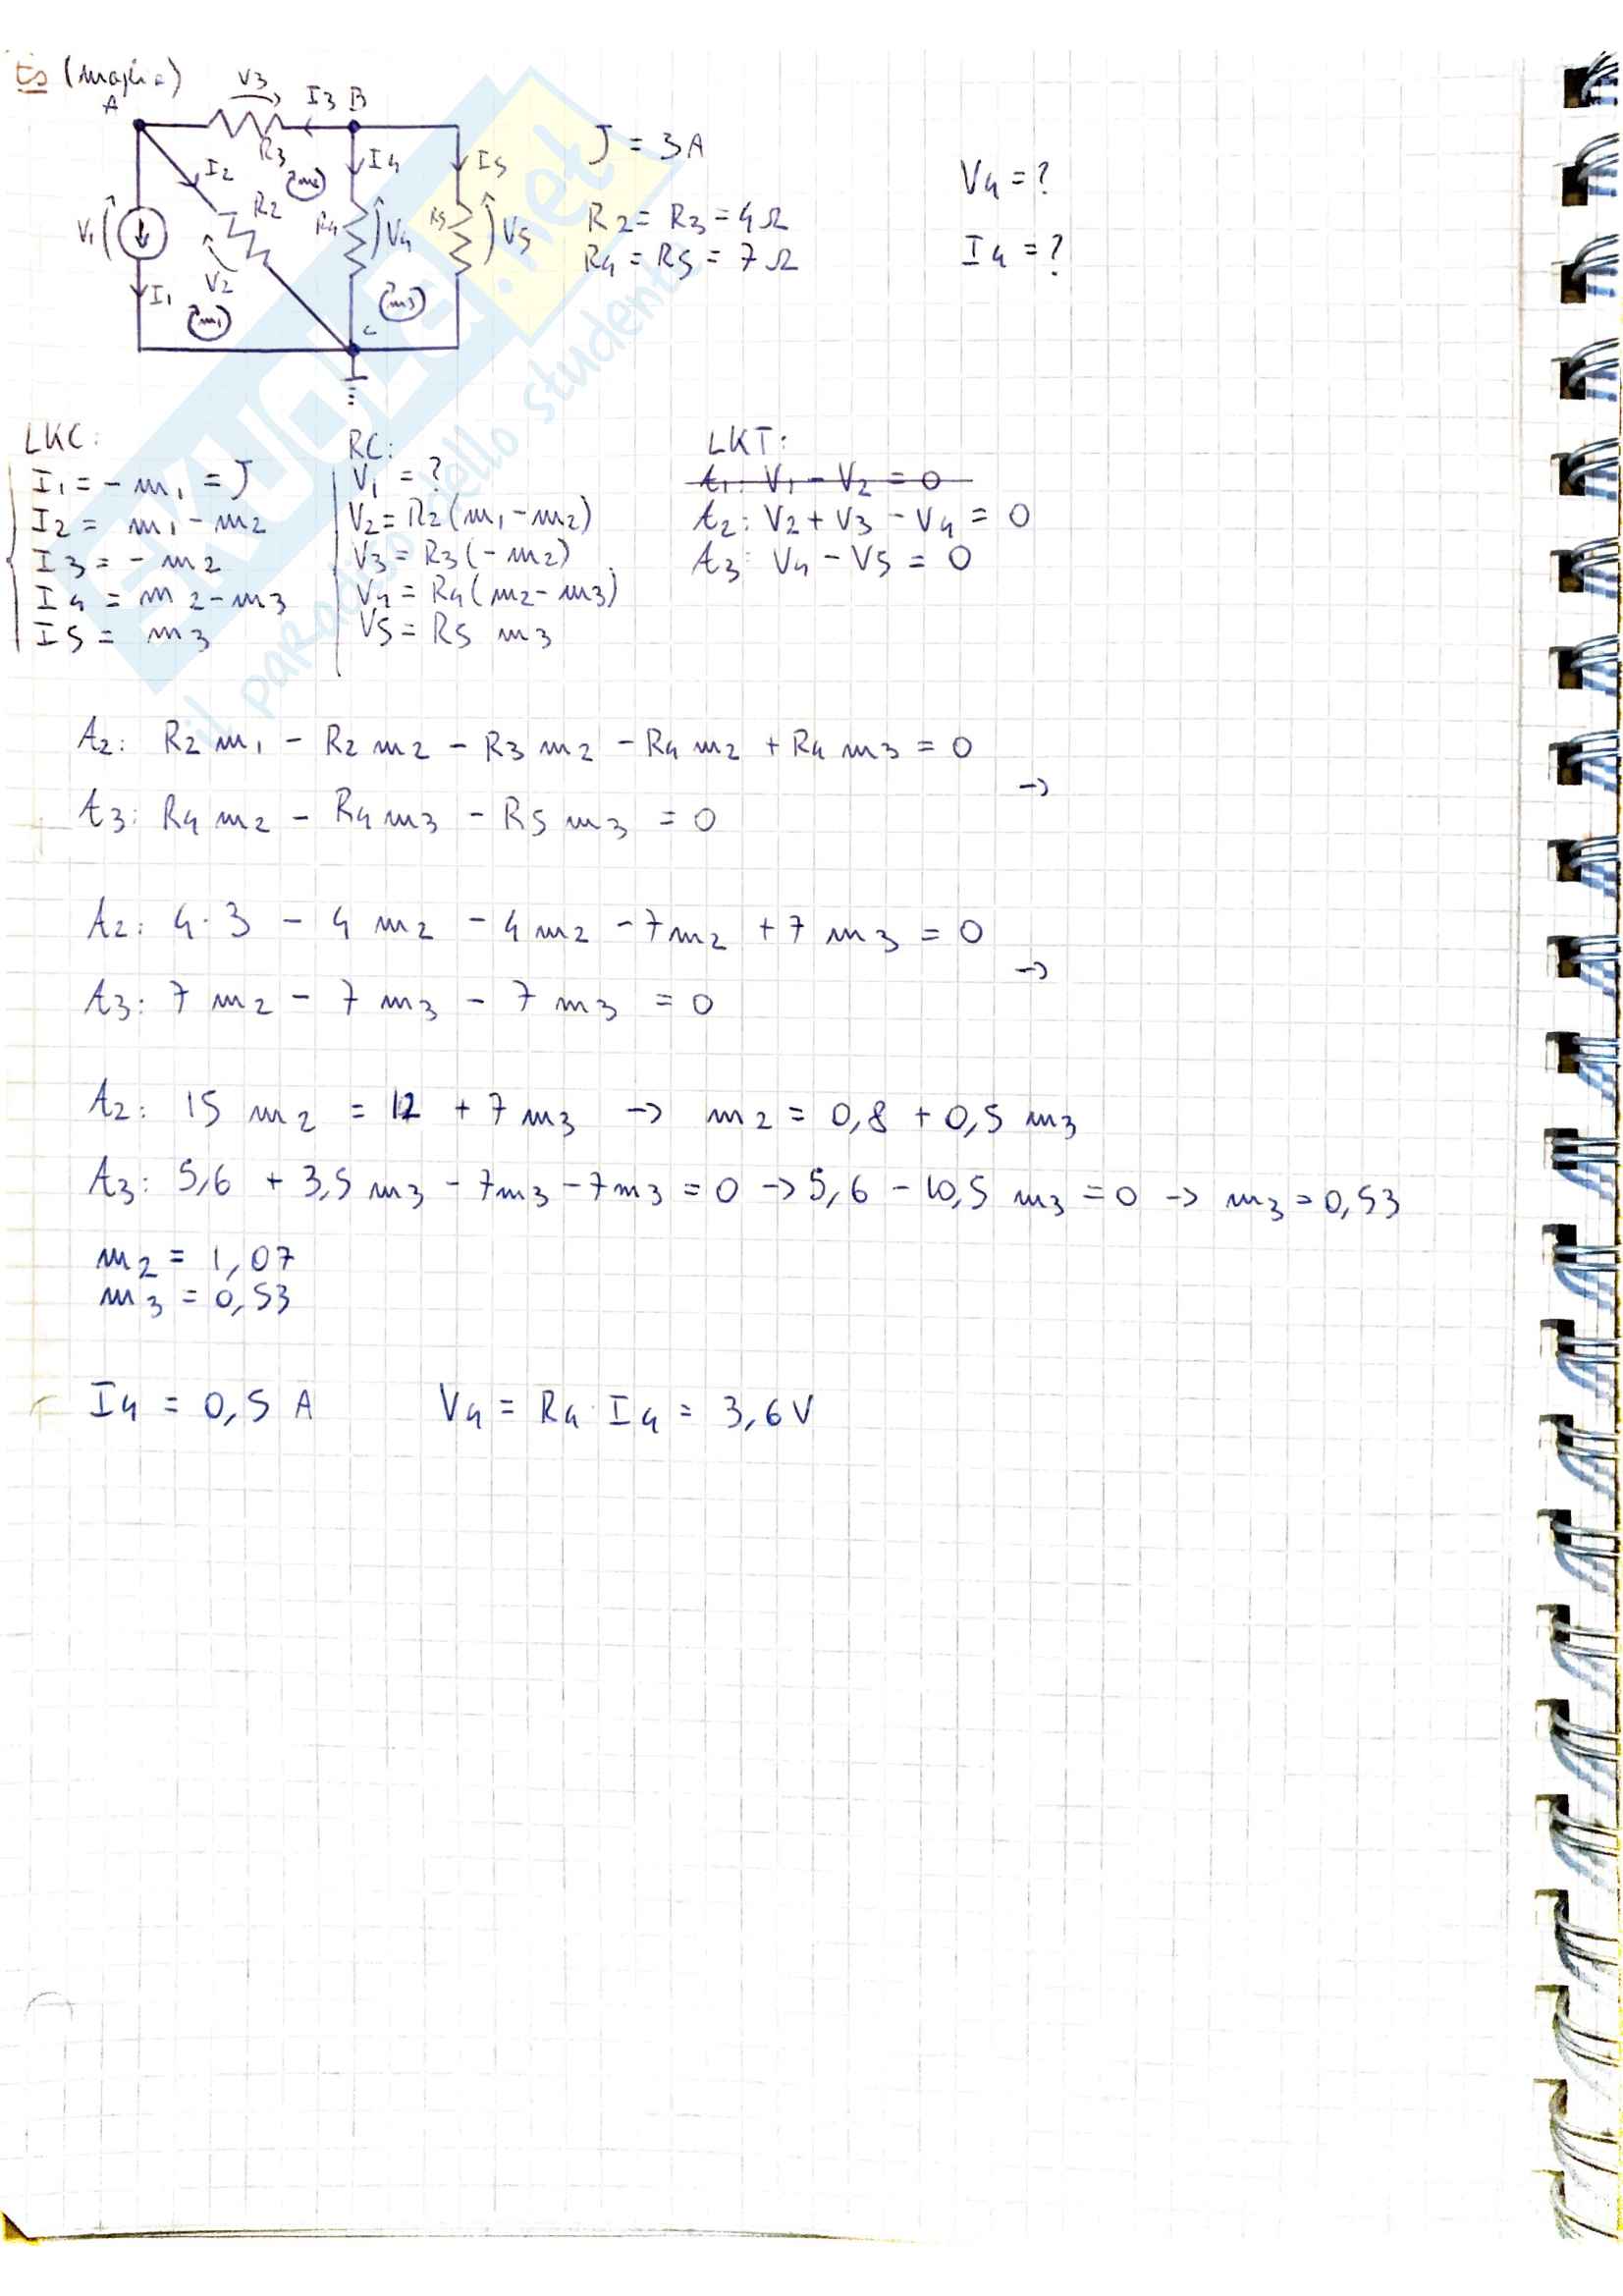 Es (maglie)
A
V3
I3 B
I2
R3
m2
I4
I5
V1
R2
R4
V4
R5
V5
V2
I1
m1
m3
C
J = 3A
R2 = R3 = 4Ω
R4 = R5 = 7Ω
V4 = ?
I4 = ?
SKUOLA.net
il paradiso dello studente
LKC:
I1 = - m1 = J
I2 = m1 - m2
I3 = - m2
I4 = m2 - m3
I5 = m3
RC:
V1 = ?
V2 = R2 (m1 - m2)
V3 = R3 (- m2)
V4 = R4 (m2 - m3)
V5 = R5 m3
LKT:
t1: V1 - V2 = 0
t2: V2 + V3 - V4 = 0
t3: V4 - V5 = 0
t2: R2 m1 - R2 m2 - R3 m2 - R4 m2 + R4 m3 = 0
→
t3: R4 m2 - R4 m3 - R5 m3 = 0
t2: 4·3 - 4 m2 - 4 m2 - 7 m2 + 7 m3 = 0
→
t3: 7 m2 - 7 m3 - 7 m3 = 0
t2: 15 m2 = 12 + 7 m3 → m2 = 0,8 + 0,5 m3
t3: 5,6 + 3,5 m3 - 7m3 - 7m3 = 0 → 5,6 - 10,5 m3 = 0 → m3 = 0,53
m2 = 1,07
m3 = 0,53
I4 = 0,5 A V4 = R4 · I4 = 3,6 V